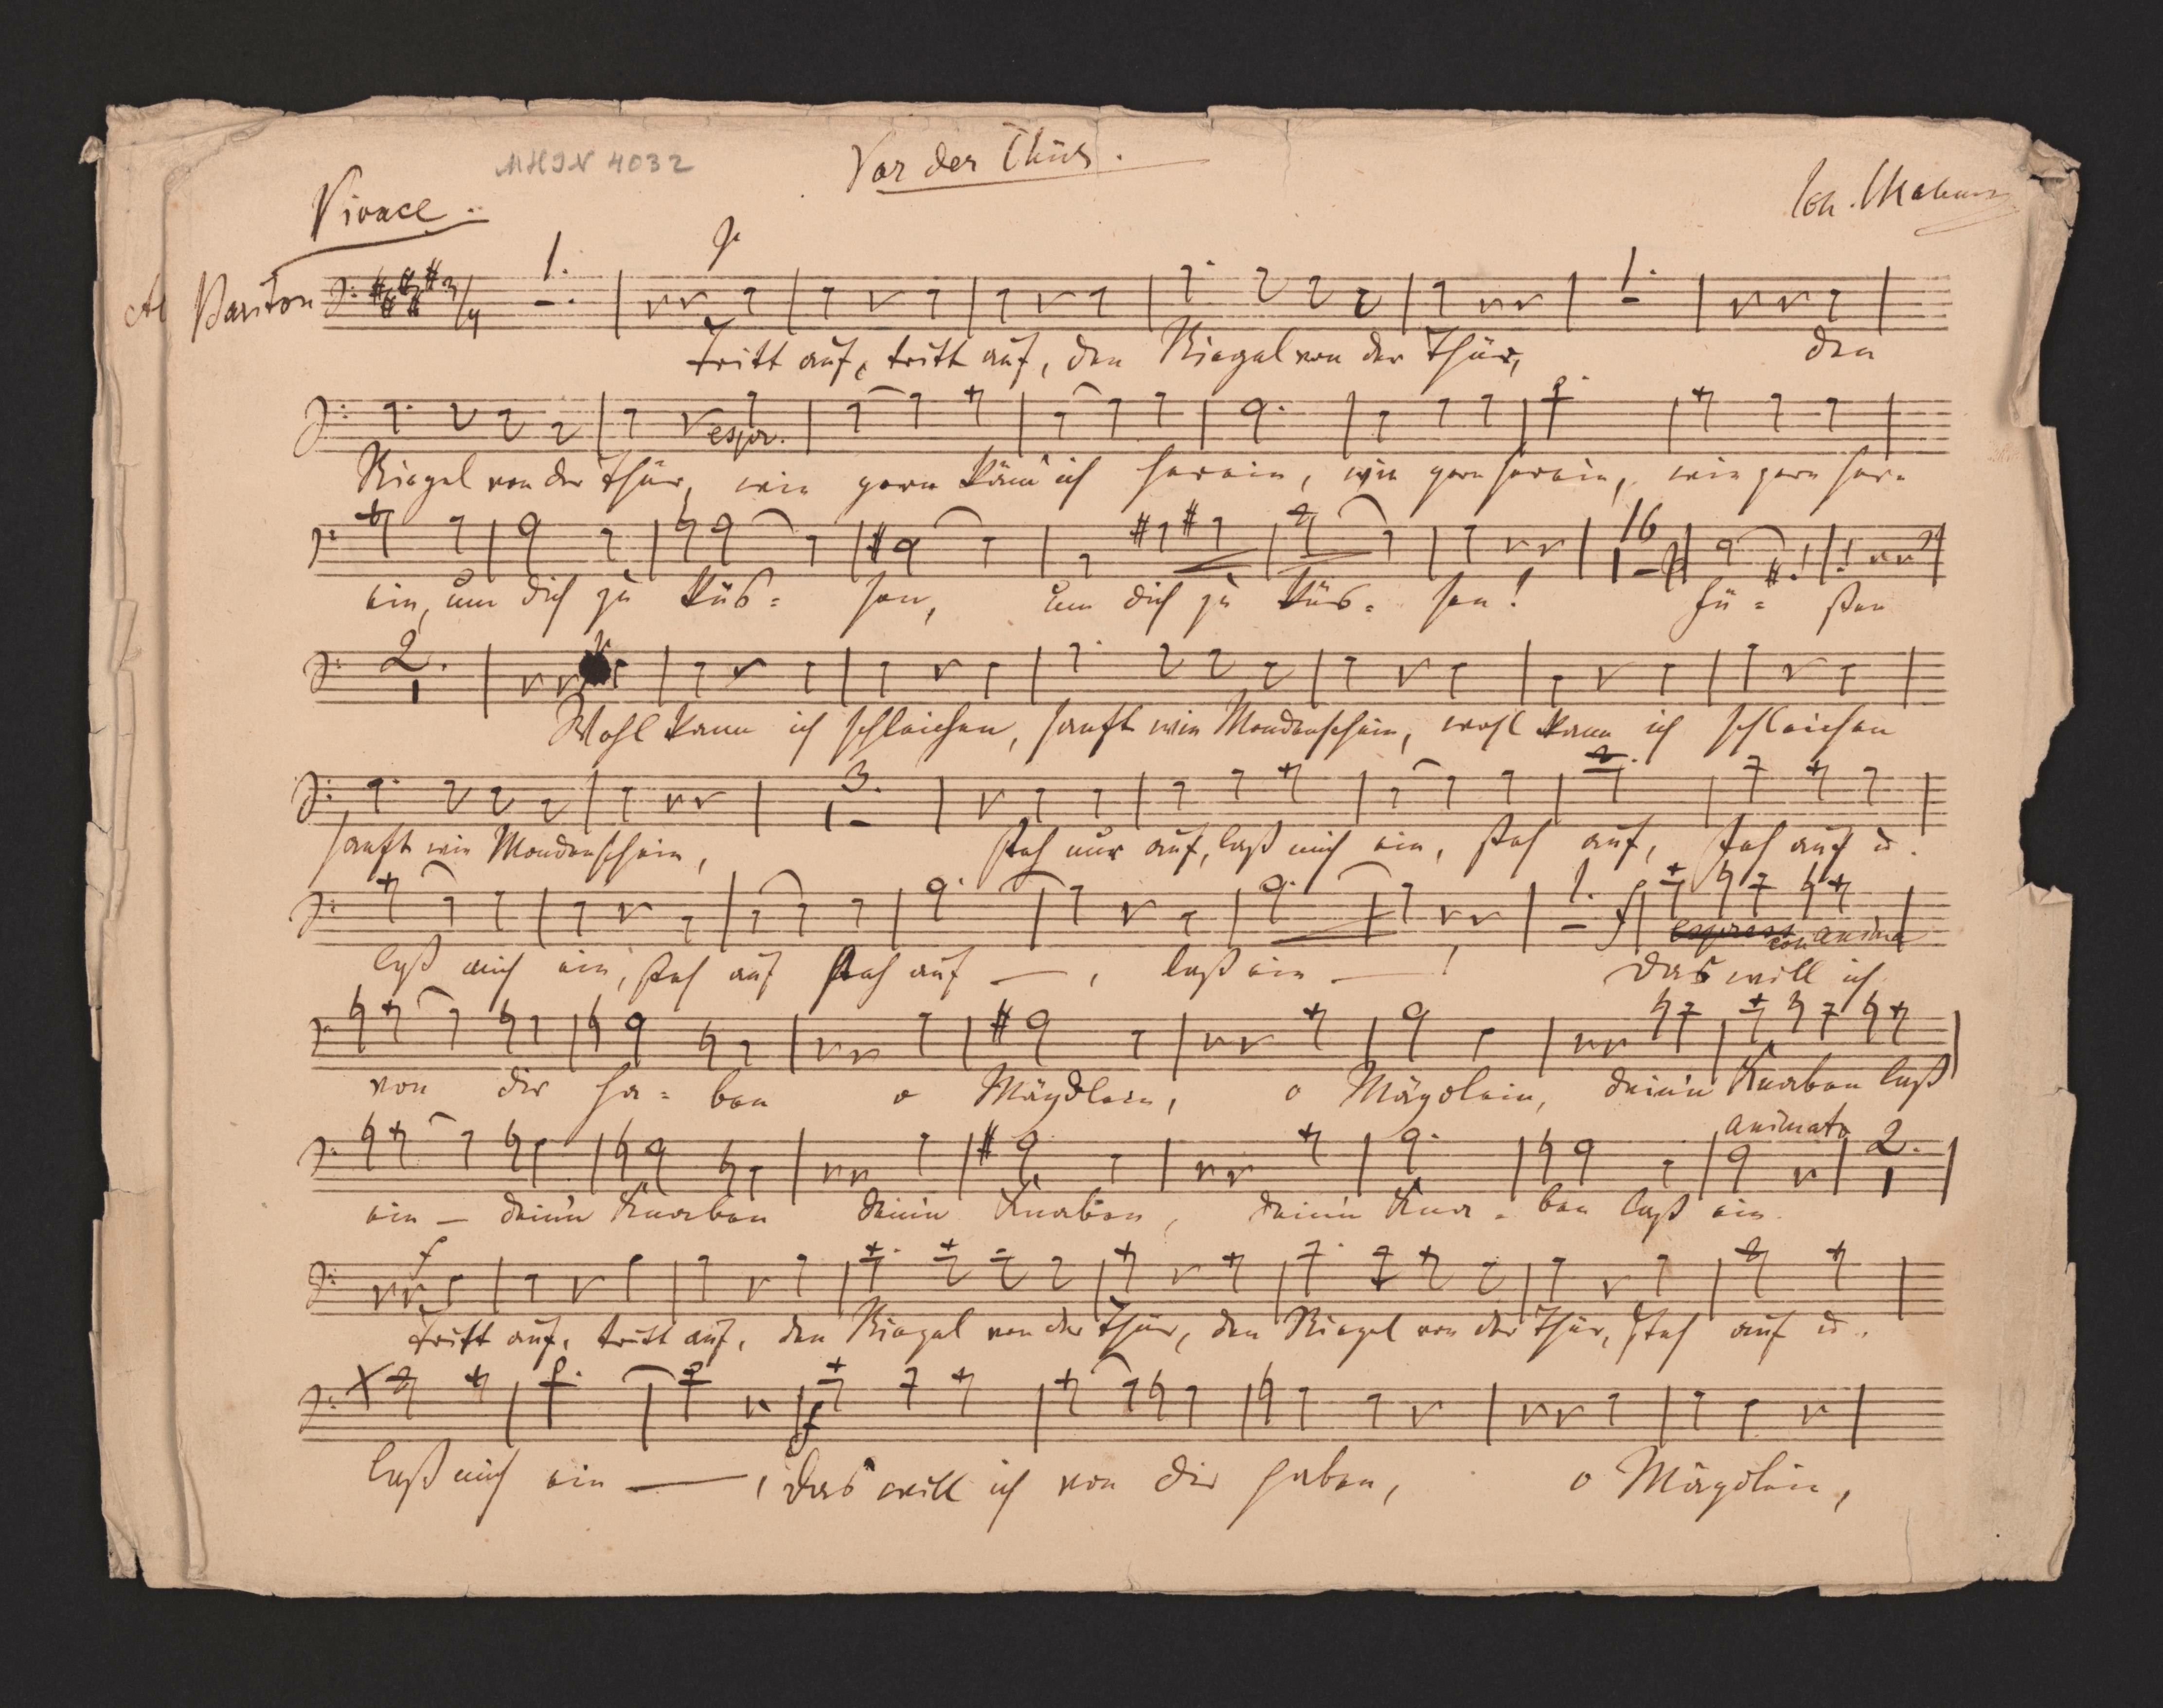 MHIN 4032
Vor der Thür.
Joh. Brahms
Vivace.
Bariton
1.
p
1.
Tritt auf, tritt auf, den Riegel von der Thür, den
espr.
Riegel von der Thür, wie gern käm' ich herein, wie gern herein, wie gern her-
16
ein, um dich zu küs= sen, um dich zu küs= sen! Fü= ßen
2.
Wohl kann ich schleichen, sanft wie Mondenschein, wohl kann ich schleichen
3.
sanft wie Mondenschein, steh nur auf, laß mich ein, steh auf, steh auf u.
1. f
espress con anima
laß mich ein, steh auf steh auf — , laß ein — ! Das will ich
von dir ha= ben o Mägdlein, o Mägdlein, dein'n Knaben laß
animato 2.
ein — dein'n Knaben dein'n Knaben, dein'n Kna- ben laß ein
f
Tritt auf, tritt auf, den Riegel von der Thür, den Riegel von der Thür, steh auf u.
f
laß mich ein — , das will ich von dir haben, o Mägdlein,